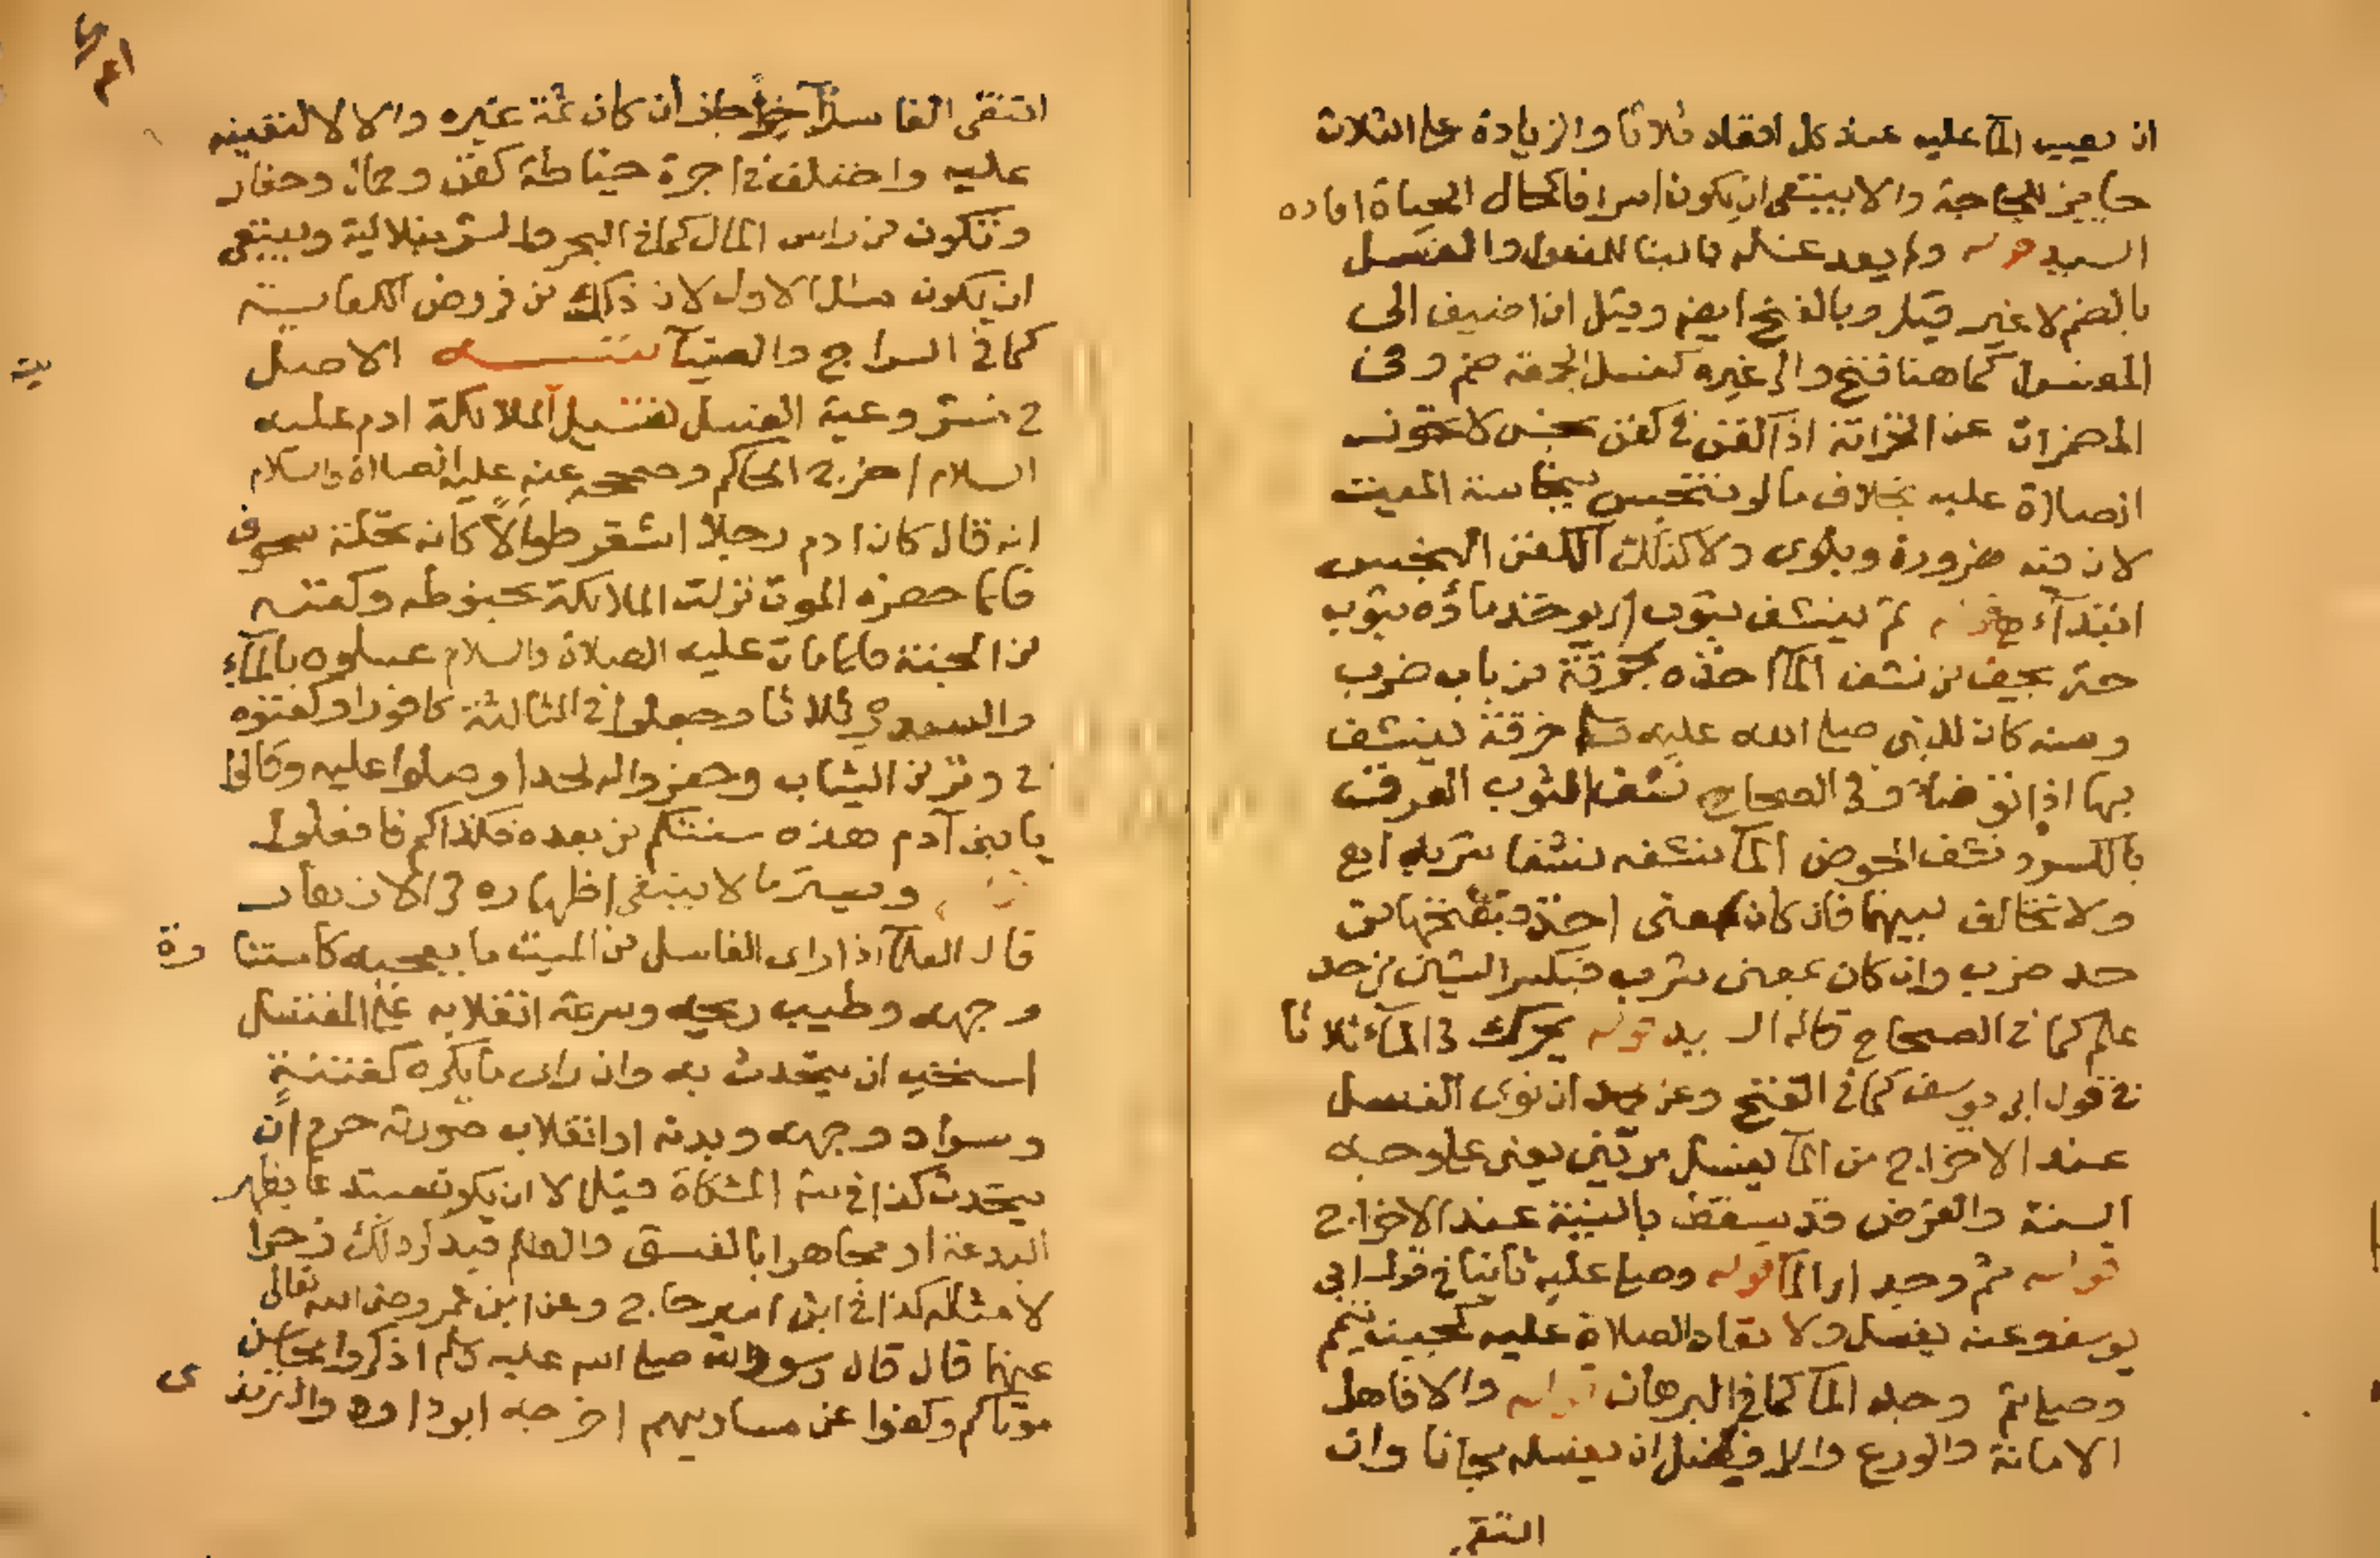 ان يصب الماء عليه عند كل اضجاع ثلاثا والزيادة على الثلاث
جايز للحاجة والا ينبغى ان يكون اسرافا كحال الحياة افاده
السيد قوله ولم يعد غسله بالبنا للمفعول والغسل
بالضم لا غير قيل وبالفتح ايضا وقيل ان اضيف الى
المغسول كما هنا فتح والى غيره كغسل الجمعة ضم وفى
المضمرات عن الخزانة اذا كفن فى كفن نجس لا تجوز
الصلاة عليه بخلاف ما لو تنجس بنجاسة الميت
لان فيه ضرورة وبلوى ولا كذلك الكفن النجس
ابتداء قوله ثم ينشف بثوب اى يوخذ ماؤه بثوب
حتى يجف من نشف الماء اخذه بخرقة من باب ضرب
ومنه كان للنبى صلى الله عليه وسلم خرقة ينشف
بها اذا توضأ وفى الصحاح نشف الثوب العرق
بالكسر ونشف الحوض الماء ينشفه نشفا شربه ايع
ولا تخالف بينهما فان كان بمعنى اخذ
حد ضرب وان كان بمعنى شرب فبكسر الشين من حد
علم كما فى الصحاح قاله السيد قوله يحرك فى الماء ثلاثا
فى قول ابى يوسف كما فى الفتح وعن محمد ان نوى الغسل
عند الاخراج من الماء يغسل مرتين يعنى على وجه
السنة والفرض قد سقط بالنية عند الاخراج
قوله ثم وجد اى الماء قوله وصلى عليه ثانيا فى قول ابى
يوسف وعنه يغسل ولا تعاد الصلاة عليه كجنب تيمم
وصلى ثم وجد الماء كما فى البرهان قوله والا فاهل
الامانة والورع والافضل ان يغسله مجانا وان
ابتغى
ابتغى الغاسل اجرا جاز ان كان ثمة غيره والا لا لتعينه
عليه واختلف فى اجرة خياطة كفن وحمال وحفار
وتكون من راس المال كما فى البحر والشرنبلالية وينبغى
ان يكون مثل الاول لان ذلك من فروض الكفاية
كما فى السراج والضيا تنبيه الاصل
فى مشروعية الغسل تغسيل الملائكة ادم عليه
السلام اخرج الحاكم وصححه عنه عليه الصلاة والسلام
انه قال كان ادم رجلا اشقر طوالا كانه نخلة سحوق
فلما حضره الموت نزلت الملائكة بحنوطه وكفنه
من الجنة فلما مات عليه الصلاة والسلام غسلوه بالماء
والسدر ثلاثا وجعلوا فى الثالثة كافورا وكفنوه
فى وتر من الثياب وحفروا له لحدا وصلوا عليه وقالوا
يا بنى آدم هذه سنتكم من بعده فكذاكم فافعلوا
قوله ويستر ما لا ينبغى اظهاره
قال العلماء اذا راى الغاسل من الميت ما يعجبه كاستنارة
وجهه وطيب ريحه وسرعة انقلابه على المغتسل
استحب ان يتحدث به وان راى ما يكره كنتنة
وسواد وجهه وبدنه او انقلاب صورته حرم ان
يتحدث كذا فى شرح المشكاة قيل الا ان يكون مبتدعا يظهر
البدعة او مجاهرا بالفسق والظلم فيذكر ذلك زجرا
لامثاله كذا فى ابن امير حاج وعن ابن عمر رضى الله تعالى
عنهما قال قال رسول الله صلى الله عليه وسلم اذكروا محاسن
موتاكم وكفوا عن مساويهم اخرجه ابو داود والترمذى